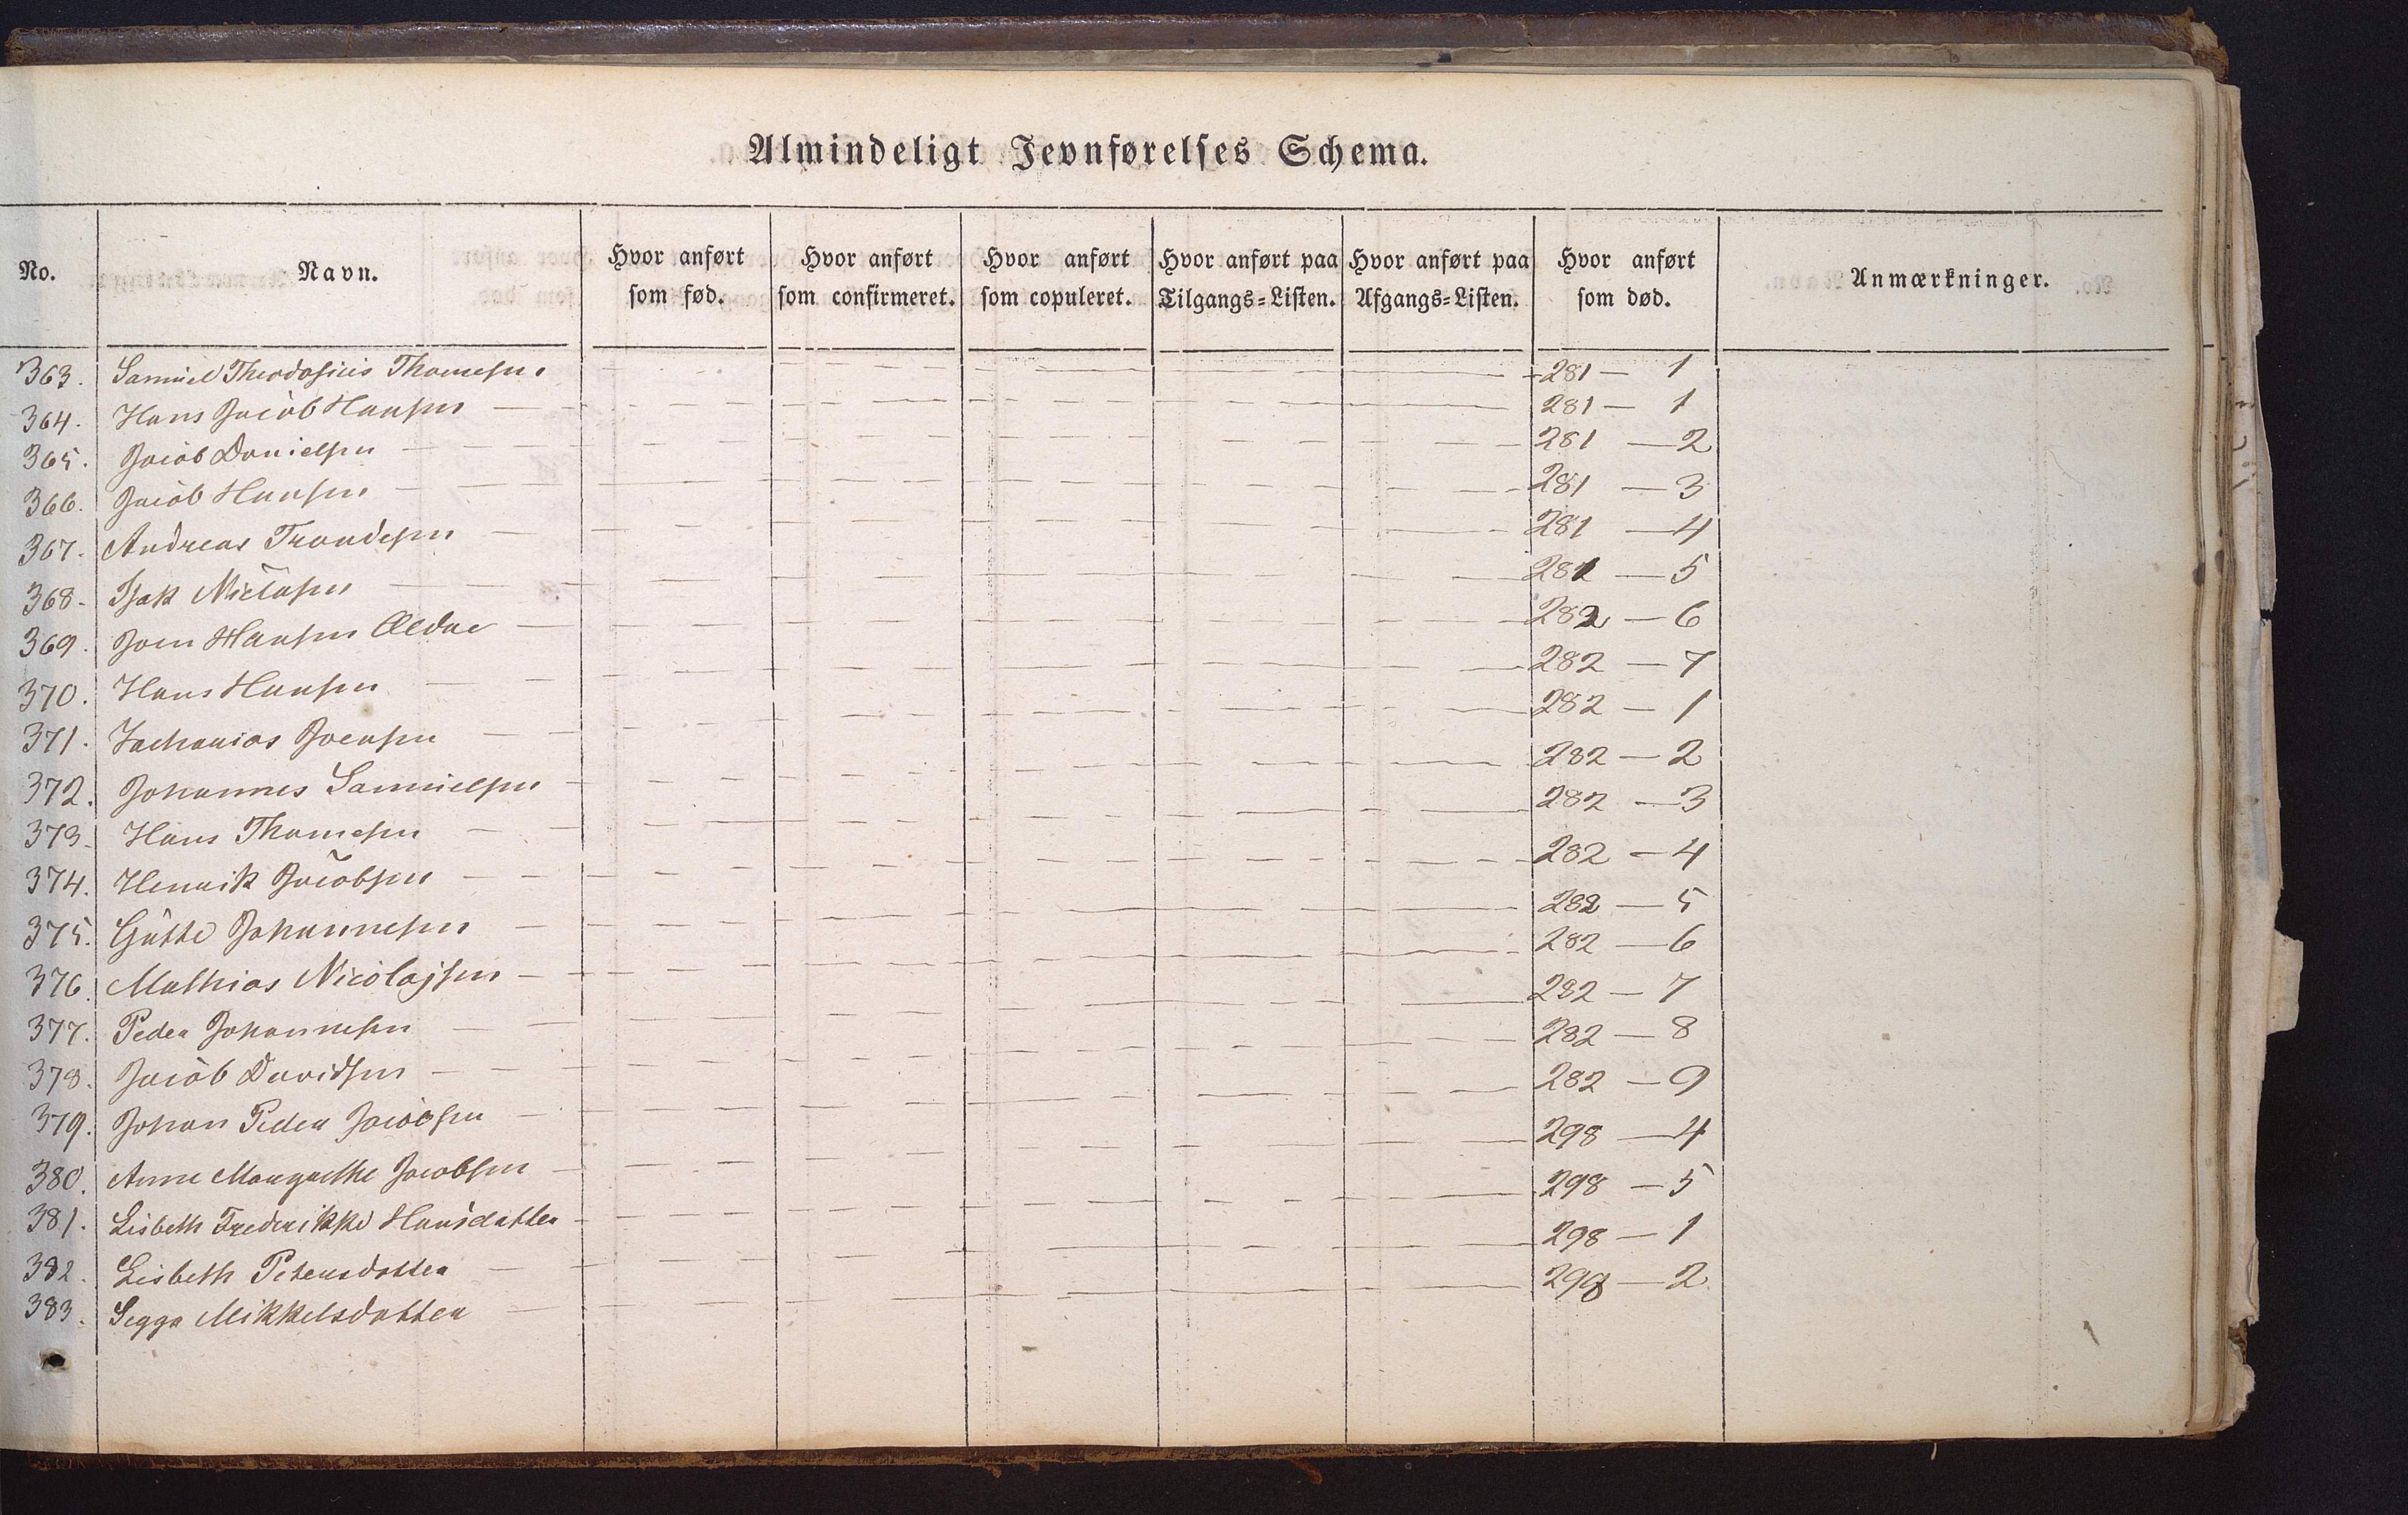 Almindeligt Jevnførelses Schema.
No. Navn. Hvor anført som fød. Hvor anført som confirmeret. Hvor anført som copuleret. Hvor anført paa Tilgangs-Listen. Hvor anført paa Afgangs-Listen. Hvor anført som død. Anmærkninger.
363. Samuel Theodosius Thomesen. 281 — 1
364. Hans Jacob Hansen 281 — 1
365. Jacob Danielsen 281 — 2
366. Jacob Hansen 281 — 3
367. Andreas Trondesen 281 — 4
368. Isak Niclasen 281 — 5
369. Joen Hansen Ældre 282 — 6
370. Hans Hansen 282 — 7
371. Zacharias Joensen 282 — 1
372. Johannes Samuelsen 282 — 2
373. Hans Thomesen 282 — 3
374. Henrik Jacobsen 282 — 4
375. Gutte Johannesen 282 — 5
376. Mathias Nicolajsen 282 — 6
377. Peder Johannesen 282 — 7
378. Jacob Davidsen 282 — 8
379. Johan Peder Jacobsen 282 — 9
380. Anne Margrethe Jacobsen 298 — 4
381. Lisbeth Frederikke Hansdatter 298 — 5
382. Lisbeth Petersdatter 298 — 1
383. Segga Mikkelsdatter 298 — 2